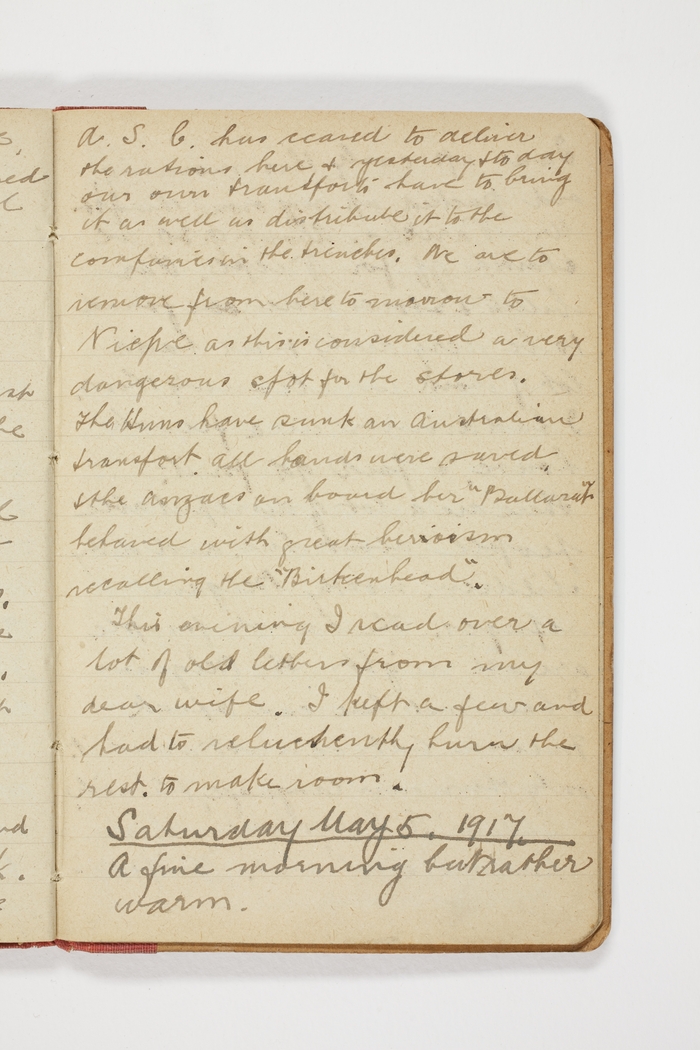 A. S. C. has ceased to deliver
the rations here & yesterday & to day
our own transports have to bring
it as well as distribute it to the
companies in the trenches. We are to
remove from here to morrow to
Niepe as this is considered a very
dangerous spot for the stores.
The Huns have sunk an Australian
transport all hands were saved
& the anzacs on board her "Ballarat"
behaved with great heroism
recalling the "Birkenhead".
This evening I read over a
lot of old letters from my
dear wife. I kept a few and
had to reluctently burn the
rest. to make room.
Saturday May 5. 1917.
A fine morning but rather
warm.